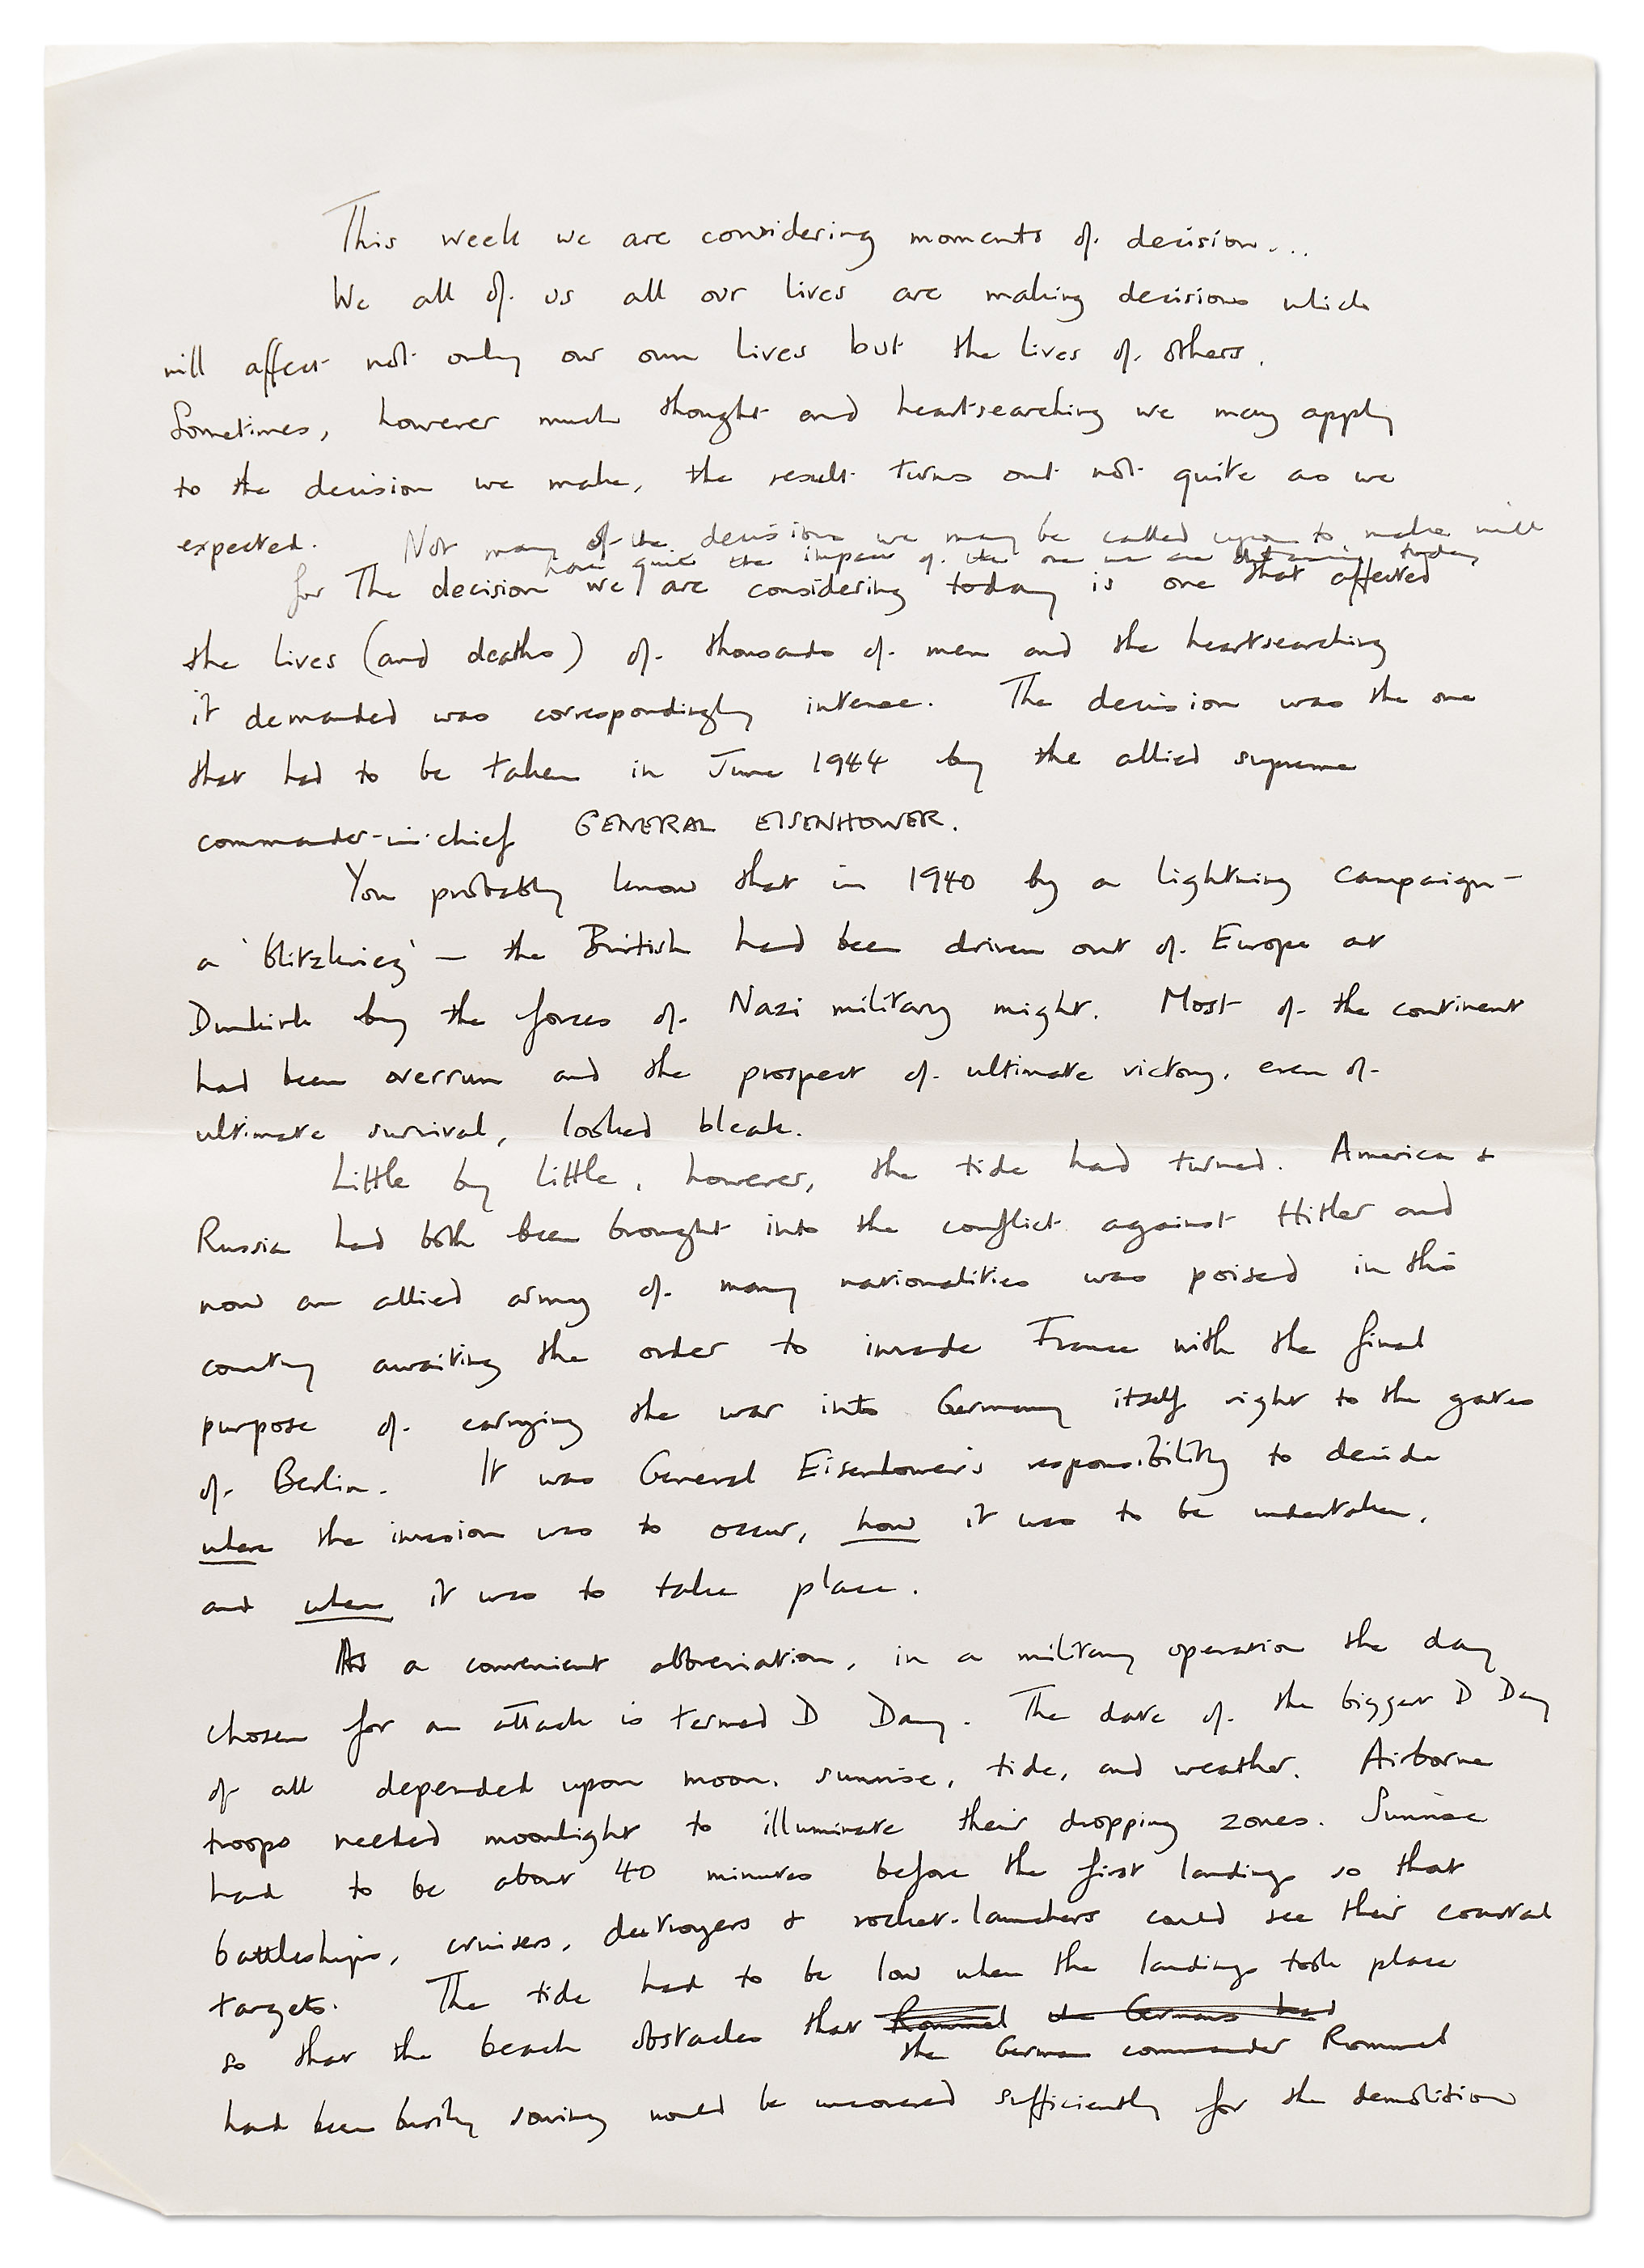 This week we are considering moments of decision...
We all of us all our lives are making decisions which
will affect not only our own lives but the lives of others.
Sometimes, however much thought and heartsearching we may apply
to the decision we make, the result turns out not quite as we
expected. Not many of the decisions we may be called upon to make will
have quite the impact of the one we are today
for The decision we are considering today is one that affected
the lives (and deaths) of thousands of men and the heartsearching
it demanded was correspondingly intense. The decision was the one
that had to be taken in June 1944 by the allied supreme
commander-in-chief GENERAL EISENHOWER.
You probably know that in 1940 by a lightning campaign -
a 'blitzkrieg' - the British had been driven out of Europe at
Dunkirk by the forces of Nazi military might. Most of the continent
had been overrun and the prospect of ultimate victory, even of
ultimate survival, looked bleak.
Little by little, however, the tide had turned. America &
Russia had both been brought into the conflict against Hitler and
now an allied army of many nationalities was poised in this
country awaiting the order to invade France with the final
purpose of carrying the war into Germany itself right to the gates
of Berlin. It was General Eisenhower's responsibility to decide
where the invasion was to occur, how it was to be undertaken,
and when it was to take place.
As a convenient abbreviation, in a military operation the day
chosen for an attack is termed D Day. The date of the biggest D Day
of all depended upon moon, sunrise, tide, and weather. Airborne
troops needed moonlight to illuminate their dropping zones. Sunrise
had to be about 40 minutes before the first landings so that
battleships, cruisers, destroyers & rocket-launchers could see their coastal
targets. The tide had to be low when the landings took place
so that the beach obstacles that Rommel the Germans had
the German commander Rommel
had been busily sowing would be uncovered sufficiently for the demolition